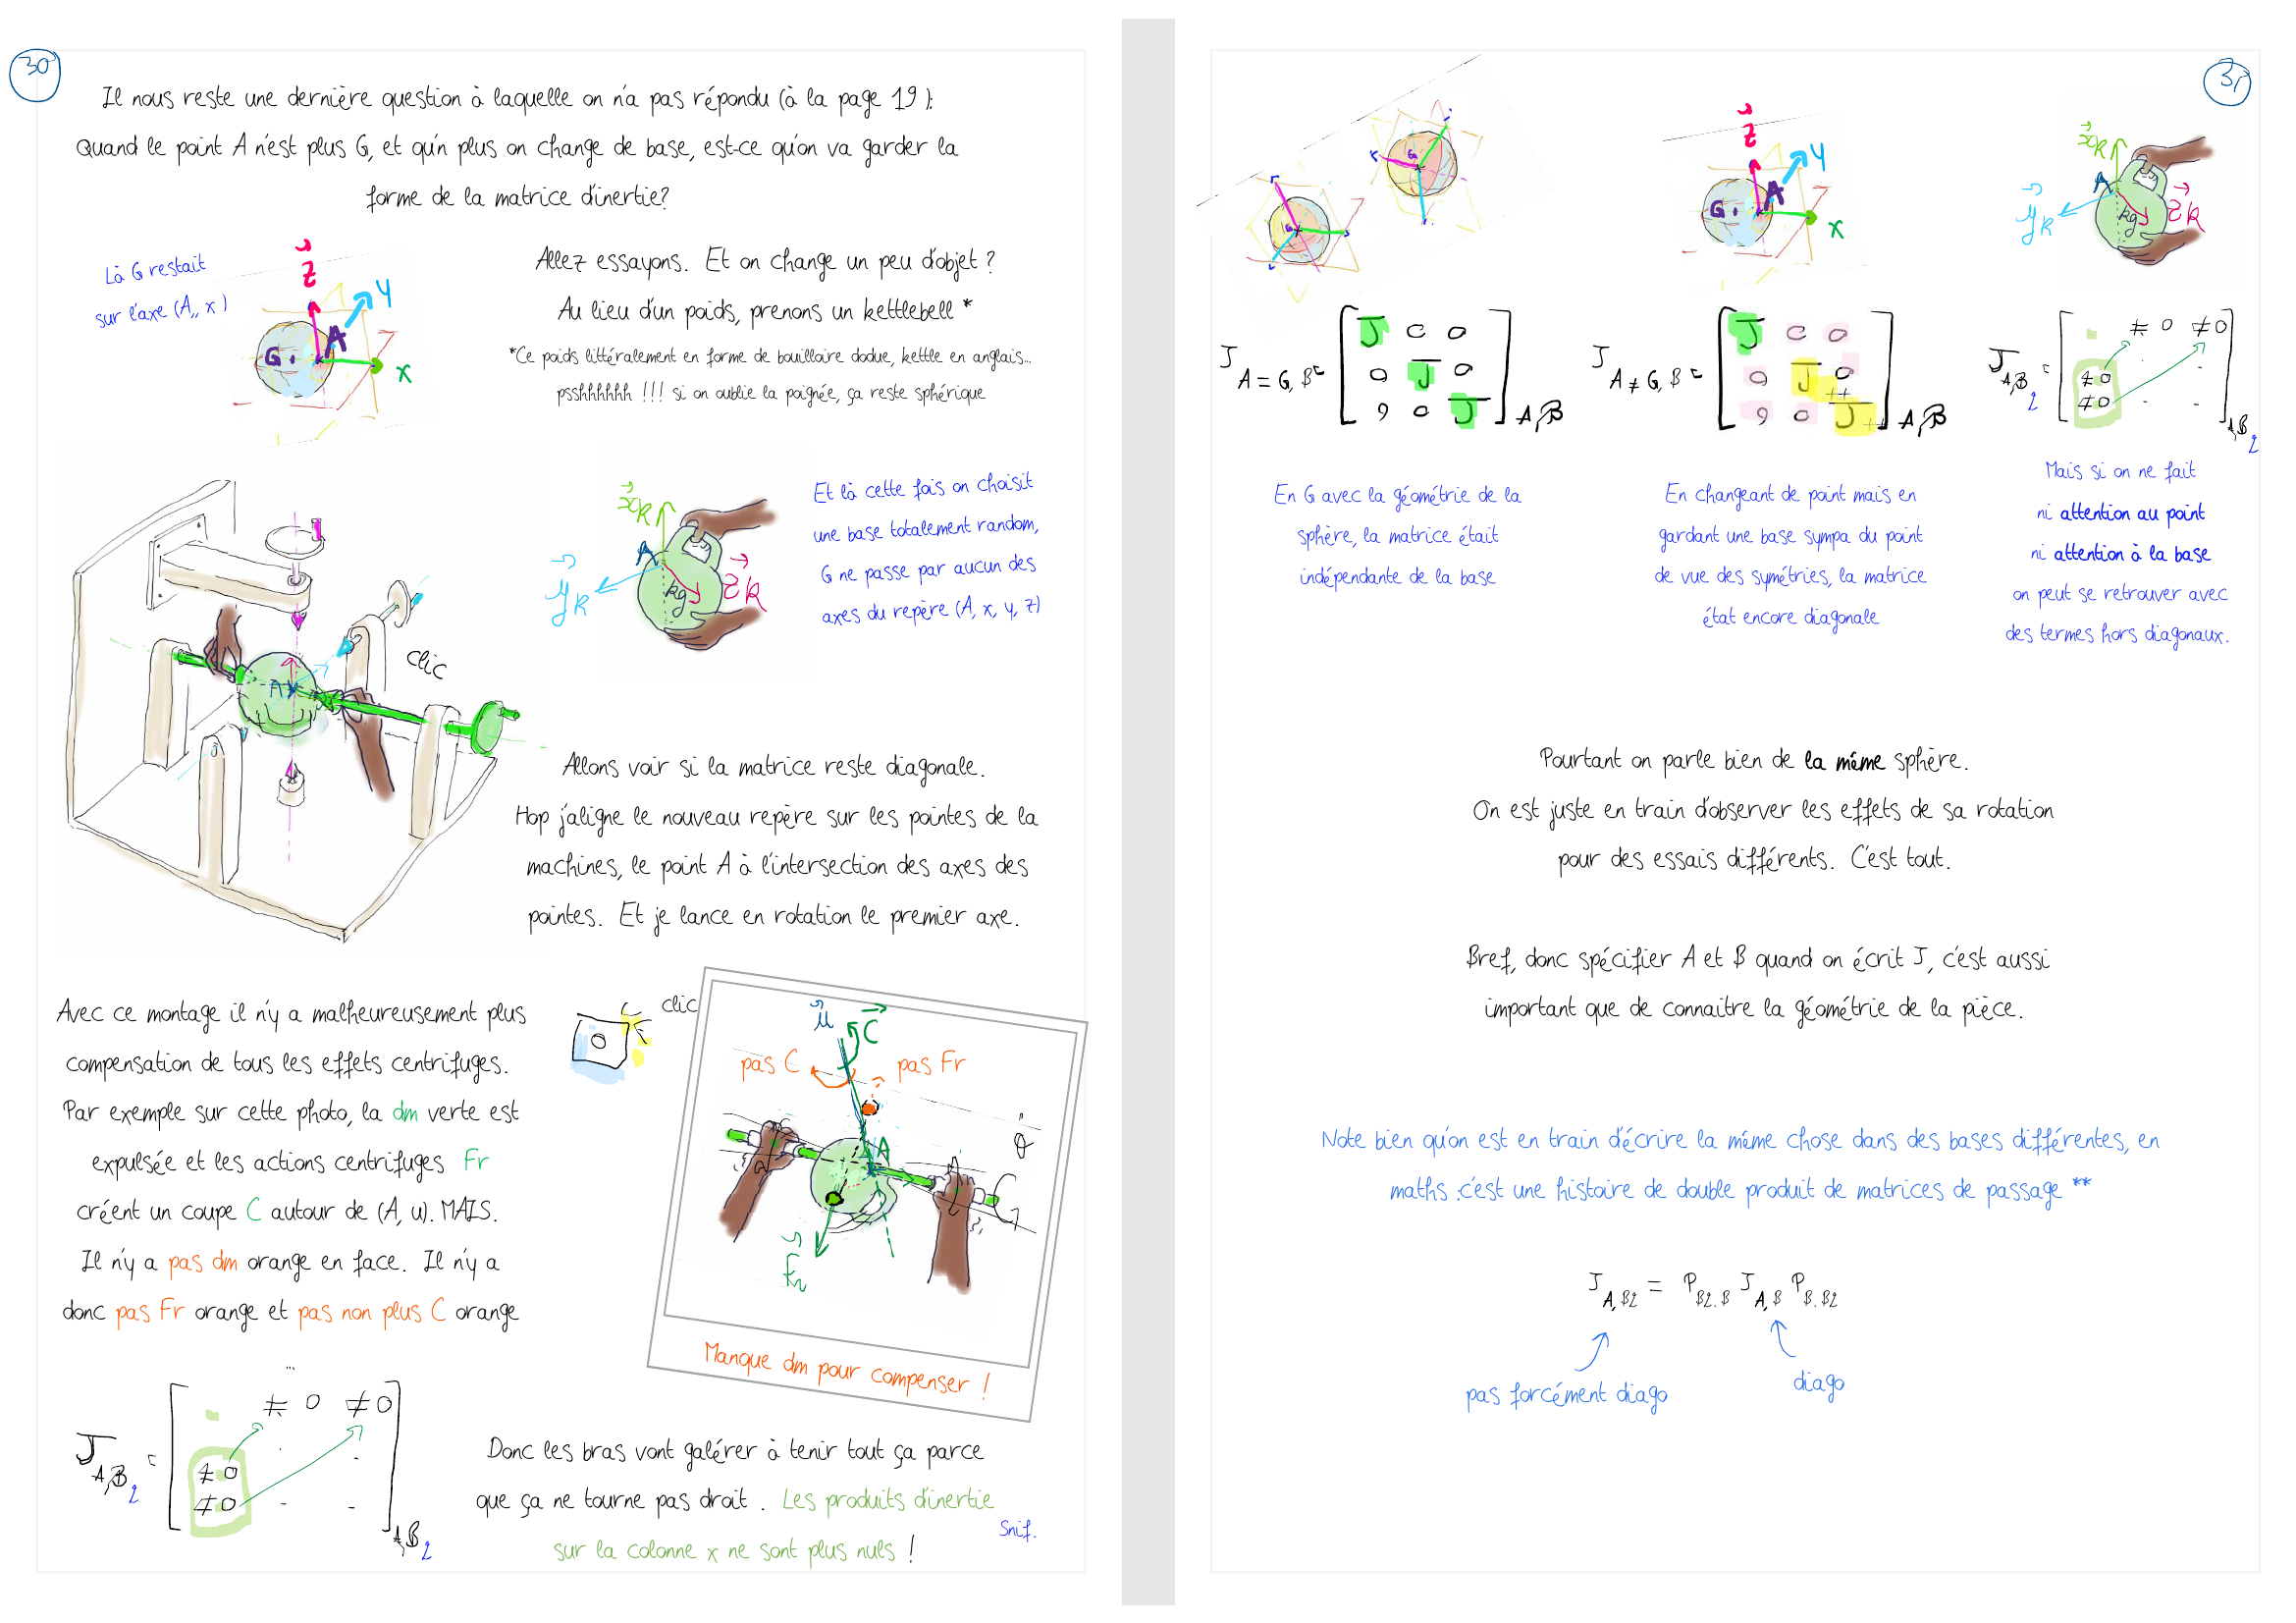 30
Il nous reste une dernière question à laquelle on n'a pas répondu (à la page 19):
Quand le point A n'est plus G, et qu'n plus on change de base, est-ce qu'on va garder la
forme de la matrice d'inertie?
Là G restait
sur l'axe (A,, x)
z
y
G.
A
x
Allez essayons. Et on change un peu d'objet ?
Au lieu d'un poids, prenons un kettlebell *
*Ce poids littéralement en forme de bouilloire dodue, kettle en anglais...
psshhhhhh !!! si on oublie la poignée, ça reste sphérique
xk
A
yk
kg
zk
Et là cette fois on choisit
une base totalement random,
G ne passe par aucun des
axes du repère (A, x, y, z)
clic
A
Allons voir si la matrice reste diagonale.
Hop j'aligne le nouveau repère sur les pointes de la
machines, le point A à l'intersection des axes des
pointes. Et je lance en rotation le premier axe.
Avec ce montage il n'y a malheureusement plus
compensation de tous les effets centrifuges.
Par exemple sur cette photo, la dm verte est
expulsée et les actions centrifuges Fr
créent un coupe C autour de (A, u). MAIS.
Il n'y a pas dm orange en face. Il n'y a
donc pas Fr orange et pas non plus C orange
clic
u
C
pas C
pas Fr
A
Fr
Manque dm pour compenser !
...
J A,B2 =
≠ 0 ≠0
≠ 0 . .
≠0 - -
A,B2
Donc les bras vont galérer à tenir tout ça parce
que ça ne tourne pas droit . Les produits d'inertie
sur la colonne x ne sont plus nuls !
Snif.
31
G
G
z
y
G.
A
x
xk
A
yk
kg
zk
J A = G, B =
J 0 0
0 J 0
0 0 J
A,B
J A ≠ G, B =
J 0 0
0 J++ 0
0 0 J++
A,B
J A,B2 =
≠ 0 ≠0
≠ 0 . .
≠0 - -
A,B2
En G avec la géométrie de la
sphère, la matrice était
indépendante de la base
En changeant de point mais en
gardant une base sympa du point
de vue des symétries, la matrice
état encore diagonale
Mais si on ne fait
ni attention au point
ni attention à la base
on peut se retrouver avec
des termes hors diagonaux.
Pourtant on parle bien de la même sphère.
On est juste en train d'observer les effets de sa rotation
pour des essais différents. C'est tout.
Bref, donc spécifier A et B quand on écrit J, c'est aussi
important que de connaitre la géométrie de la pièce.
Note bien qu'on est en train d'écrire la même chose dans des bases différentes, en
maths :c'est une histoire de double produit de matrices de passage **
J A,B2 = P B2.B J A,B P B.B2
pas forcément diago
diago